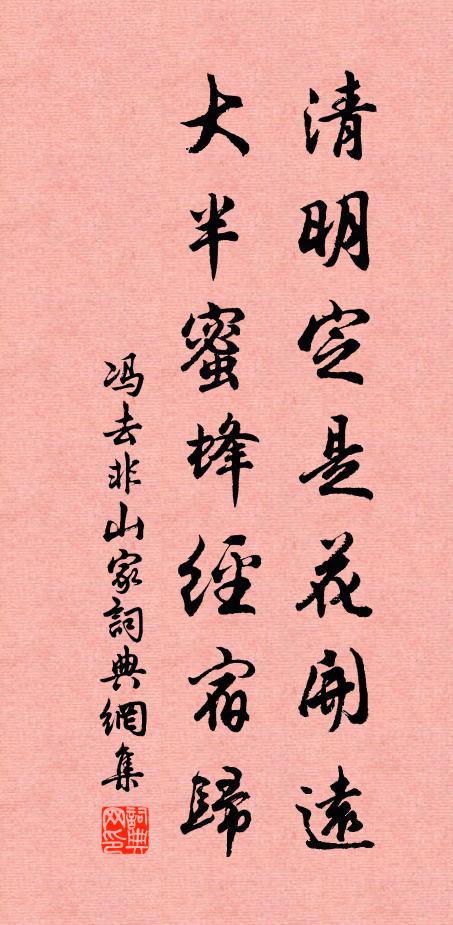 清明定是花開遠
大半蜜蜂經宿歸
冯去非山家詞典網集
詞典網印